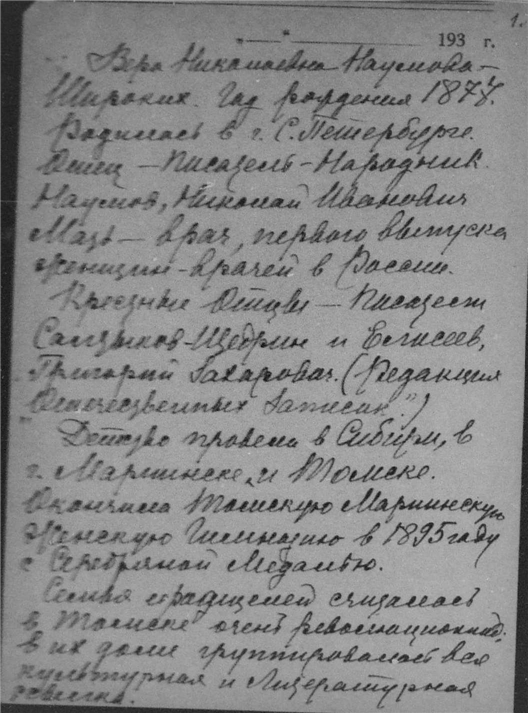 1.
" " 193 г.
Вера Николаевна Наумова-
Широких. Год рождения 1877.
Родилась в г. С. Петербурге.
Отец — Писатель-Народник
Наумов, Николай Иванович
Мать — врач, первого выпуска
женщин-врачей в России.
Крестные Отцы — Писатели
Салтыков-Щедрин и Елисеев,
Григорий Захарович. (Редакция
"Отечественных Записок")
Детство провела в Сибири, в
г. Мариинске и Томске.
Окончила Томскую Мариинскую
Женскую Гимназию в 1895 году
с Серебряной Медалью.
Семья родителей считалась
в Томске очень революционной;
в их доме группировалась вся
культурная и литературная